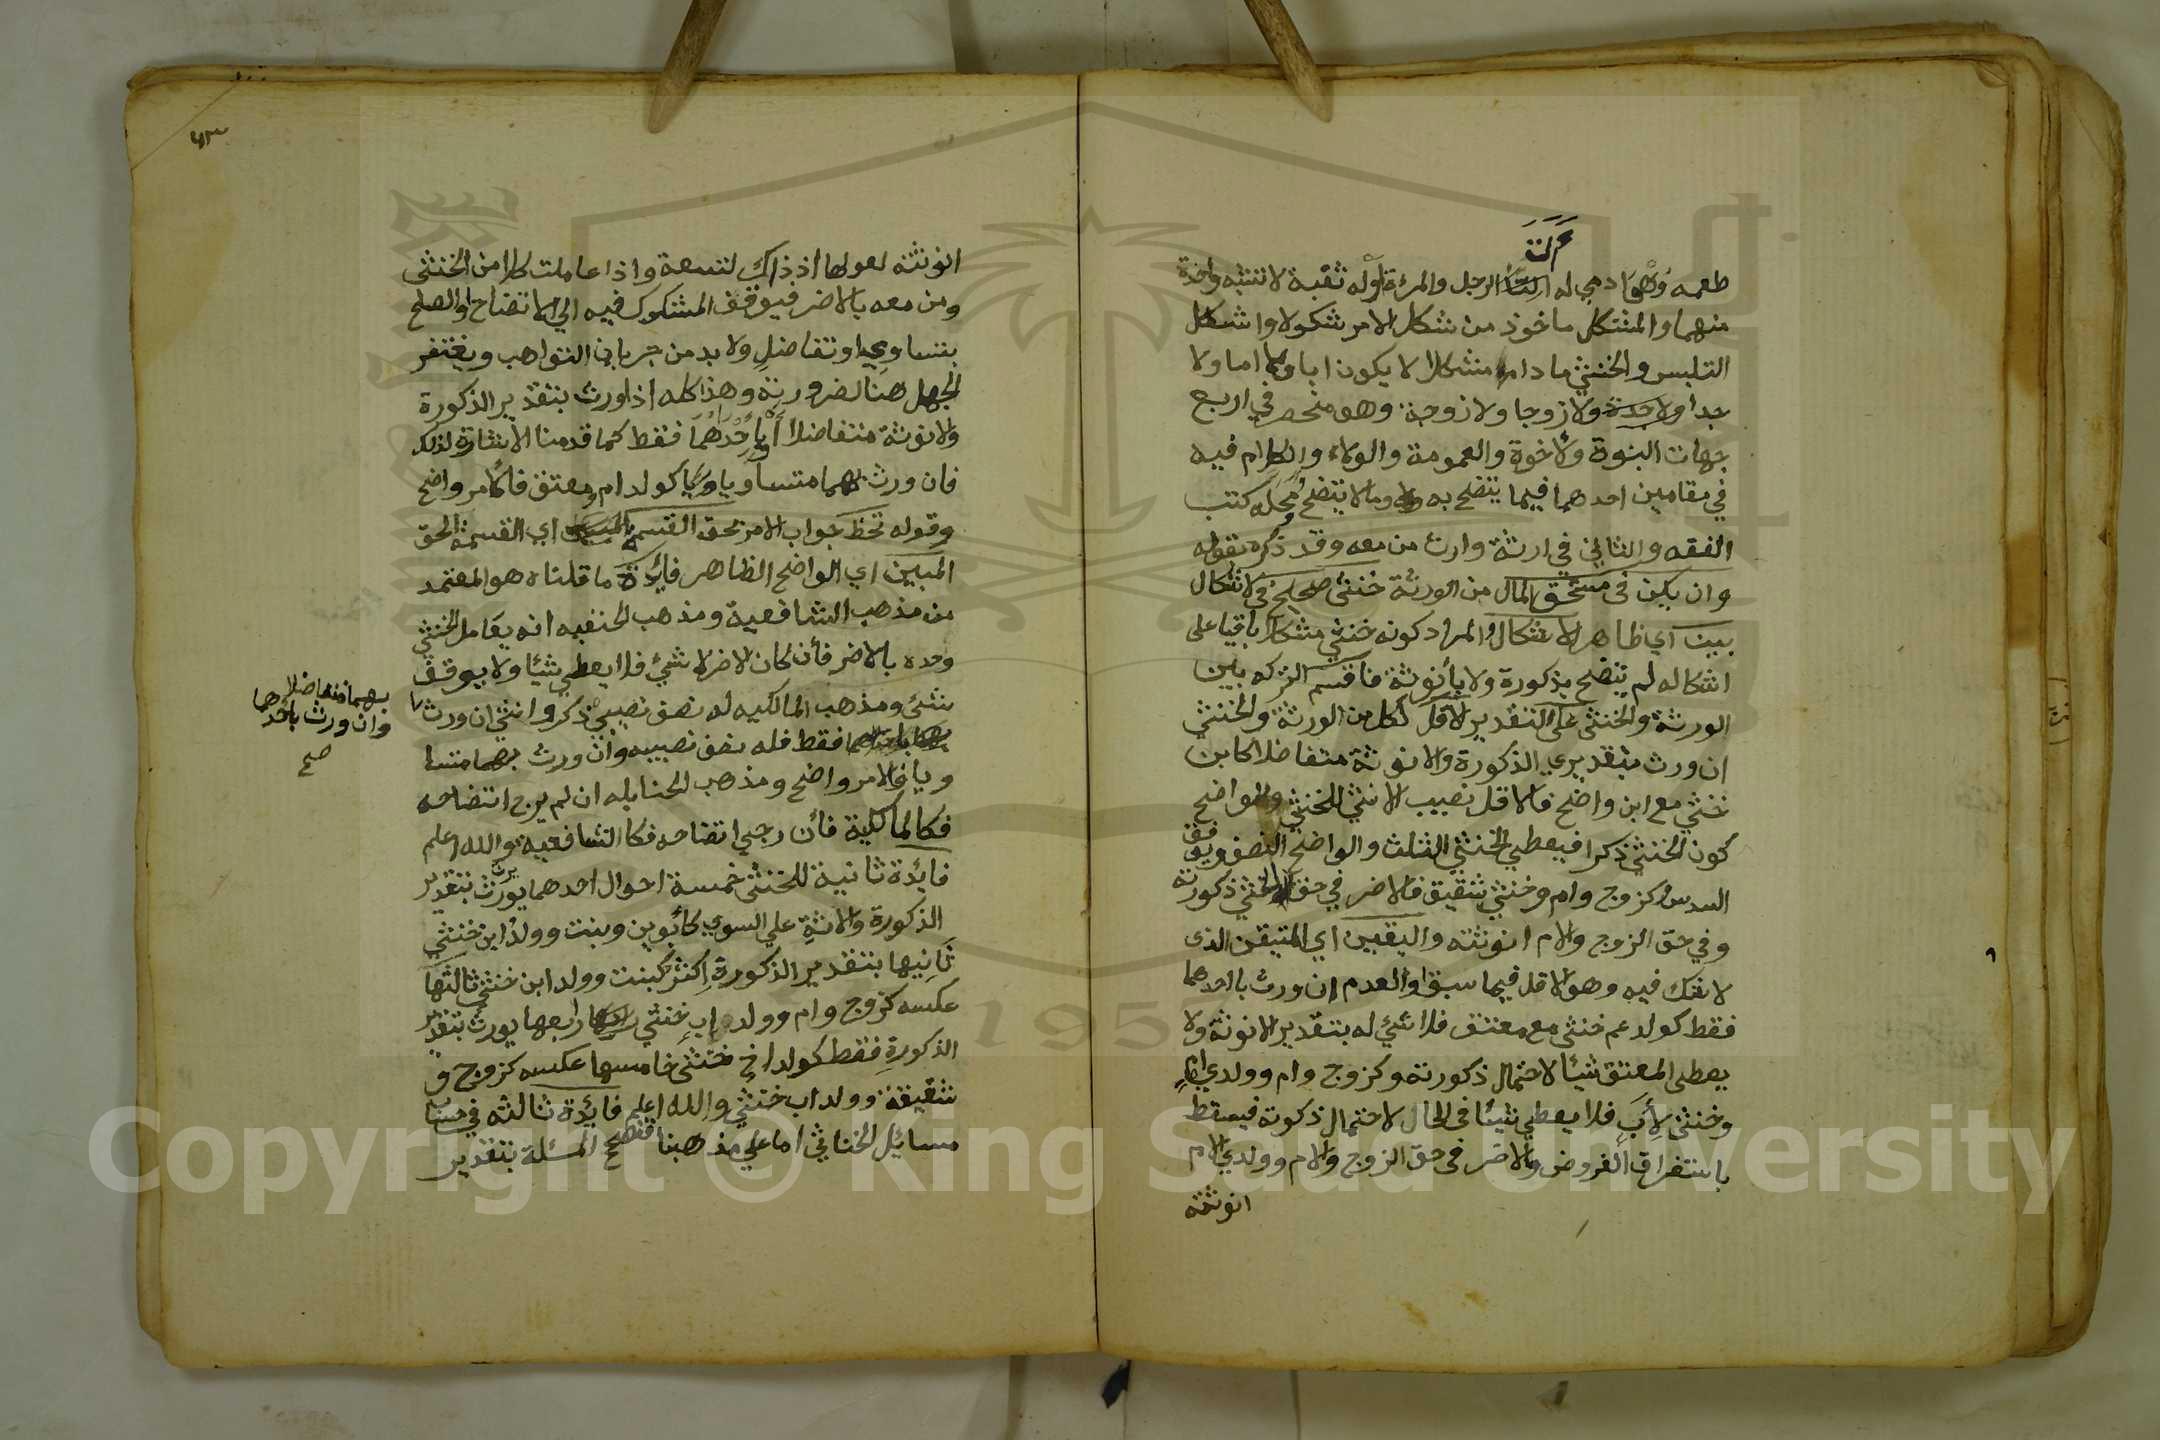 آلتا
طعمه وهو ادمي له الرجل والمرءة اوله ثقبة لا تشبه واحدة
منهما والمشكل ماخوذ من شكل الامر شكولا واشكل
التلبس والخنثي ما دام مشكلا لا يكون ابا ولا اما ولا
جدا ولا جدة ولا زوجا ولا زوجة وهو منحصر في اربع
جهات البنوة والاخوة والعمومة والولاء والكلام فيه
في مقامين احدهما فيما يتضح به وما لا يتضح ومحله كتب
الفقه والثاني في ارثه وارث من معه وقد ذكره بقوله
وان يكن في مستحق المال من الورثة خنثي صحيح في الاشكال
بين اي ظاهر الاشكال والمراد كونه خنثي مشكلا باقيا علي
اشكاله لم يتضح بذكورة ولا بأنوثة فاقسم التركه بين
الورثة والخنثي علي التقدير الاقل لكل من الورثة والخنثي
ان ورث بتقديري الذكورة والانوثة متفاضلا كابن
خنثي مع ابن واضح فالاقل نصيب الانثي للخنثي وللواضح
كون الخنثي ذكرا فيعطي الخنثي الثلث والواضح النصف ويوقف
السدس وكزوج وام وخنثي شقيق فالاضر في حق الخنثي ذكورته
وفي حق الزوج والام انوثته واليقين اي المتيقن الذي
لا شك فيه وهو الاقل فيما سبق او العدم ان ورث باحدهما
فقط كولد عم خنثي مع معتق فلا شيء له بتقدير الانوثة ولا
يعطي المعتق شيئا لاحتمال ذكورته وكزوج وام وولدي ام
وخنثي لأب فلا يعطي شيئا في الحال لاحتمال ذكوته فيسقط
باستغراق الفروض والاضر في حق الزوج والام وولدي الام
انوثته
٤٣
انوثته لعولها اذ ذاك لتسعة واذا عاملت كلا من الخنثي
ومن معه بالاضر فيوقف المشكوك فيه الي الاتضاح او الصلح
بتساوي او تفاضل ولا بد من جريان التواهب ويغتفر
الجهل هنا للضرورته وهذا كله اذا ورث بتقدير الذكورة
والانوثة متفاضلا او باحدهما فقط كما قدمنا الاشارة لذلك
فان ورث بهما متساويا كولد ام ومعتق فالامر واضح
وقوله تحظ جواب الامر بحق القسمة المبين اي القسمة الحق
المبين اي الواضح الظاهر فايدة ما قلناه هو المعتمد
من مذهب الشافعية ومذهب الحنفيه انه يعامل الخنثي
وحده بالاضر فأن كان الاضر لا شيء فلا يعطي شيئا ولا يوقف
شئ ومذهب المالكيه له نصف نصيبي ذكر وانثي ان ورث
بهما متفاضلا
وان ورث باحدهما
صح
فقط فله نصف نصيبه وان ورث بهما متسا
ويا فالامر واضح ومذهب الحنابله ان لم يرج اتضاحه
فكالمالكية فأن رجي اتضاحه فكا الشافعية والله اعلم
فايدة ثانية للخنثي خمسة احوال احدهما يورث بتقدير
الذكورة والانثة علي السوي كأبوين وبنت وولد ابن خنثي
ثانيها بتقدير الذكورة اكثر كبنت وولد ابن خنثي ثالثها
عكسه كزوج وام وولد اب خنثي رابعها يورث بتقدير
الذكورة فقط كولد اخ خنثي خامسها عكسه كزوج و
شقيقة وولد اب خنثي والله اعلم فايدة ثالثه في حساب
مسائل الخناثي اما علي مذهبنا فصحح المسئلة بتقدير
Copyright © King Saud University
1957